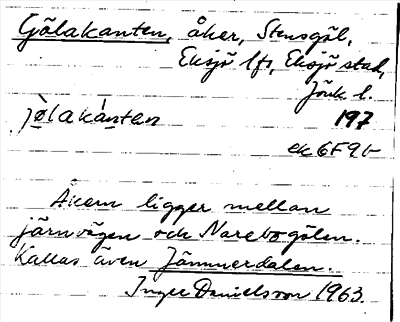 Gölakanten, åker, Stensgöl,
Eksjö lfs, Eksjö stad,
Jönk l.
jø̀lakántan 197
ek 6F9b
Åkern ligger mellan
järnvägen och Narebogölen.
Kallas även Jämmerdalen.
Inger Danielsson 1963.